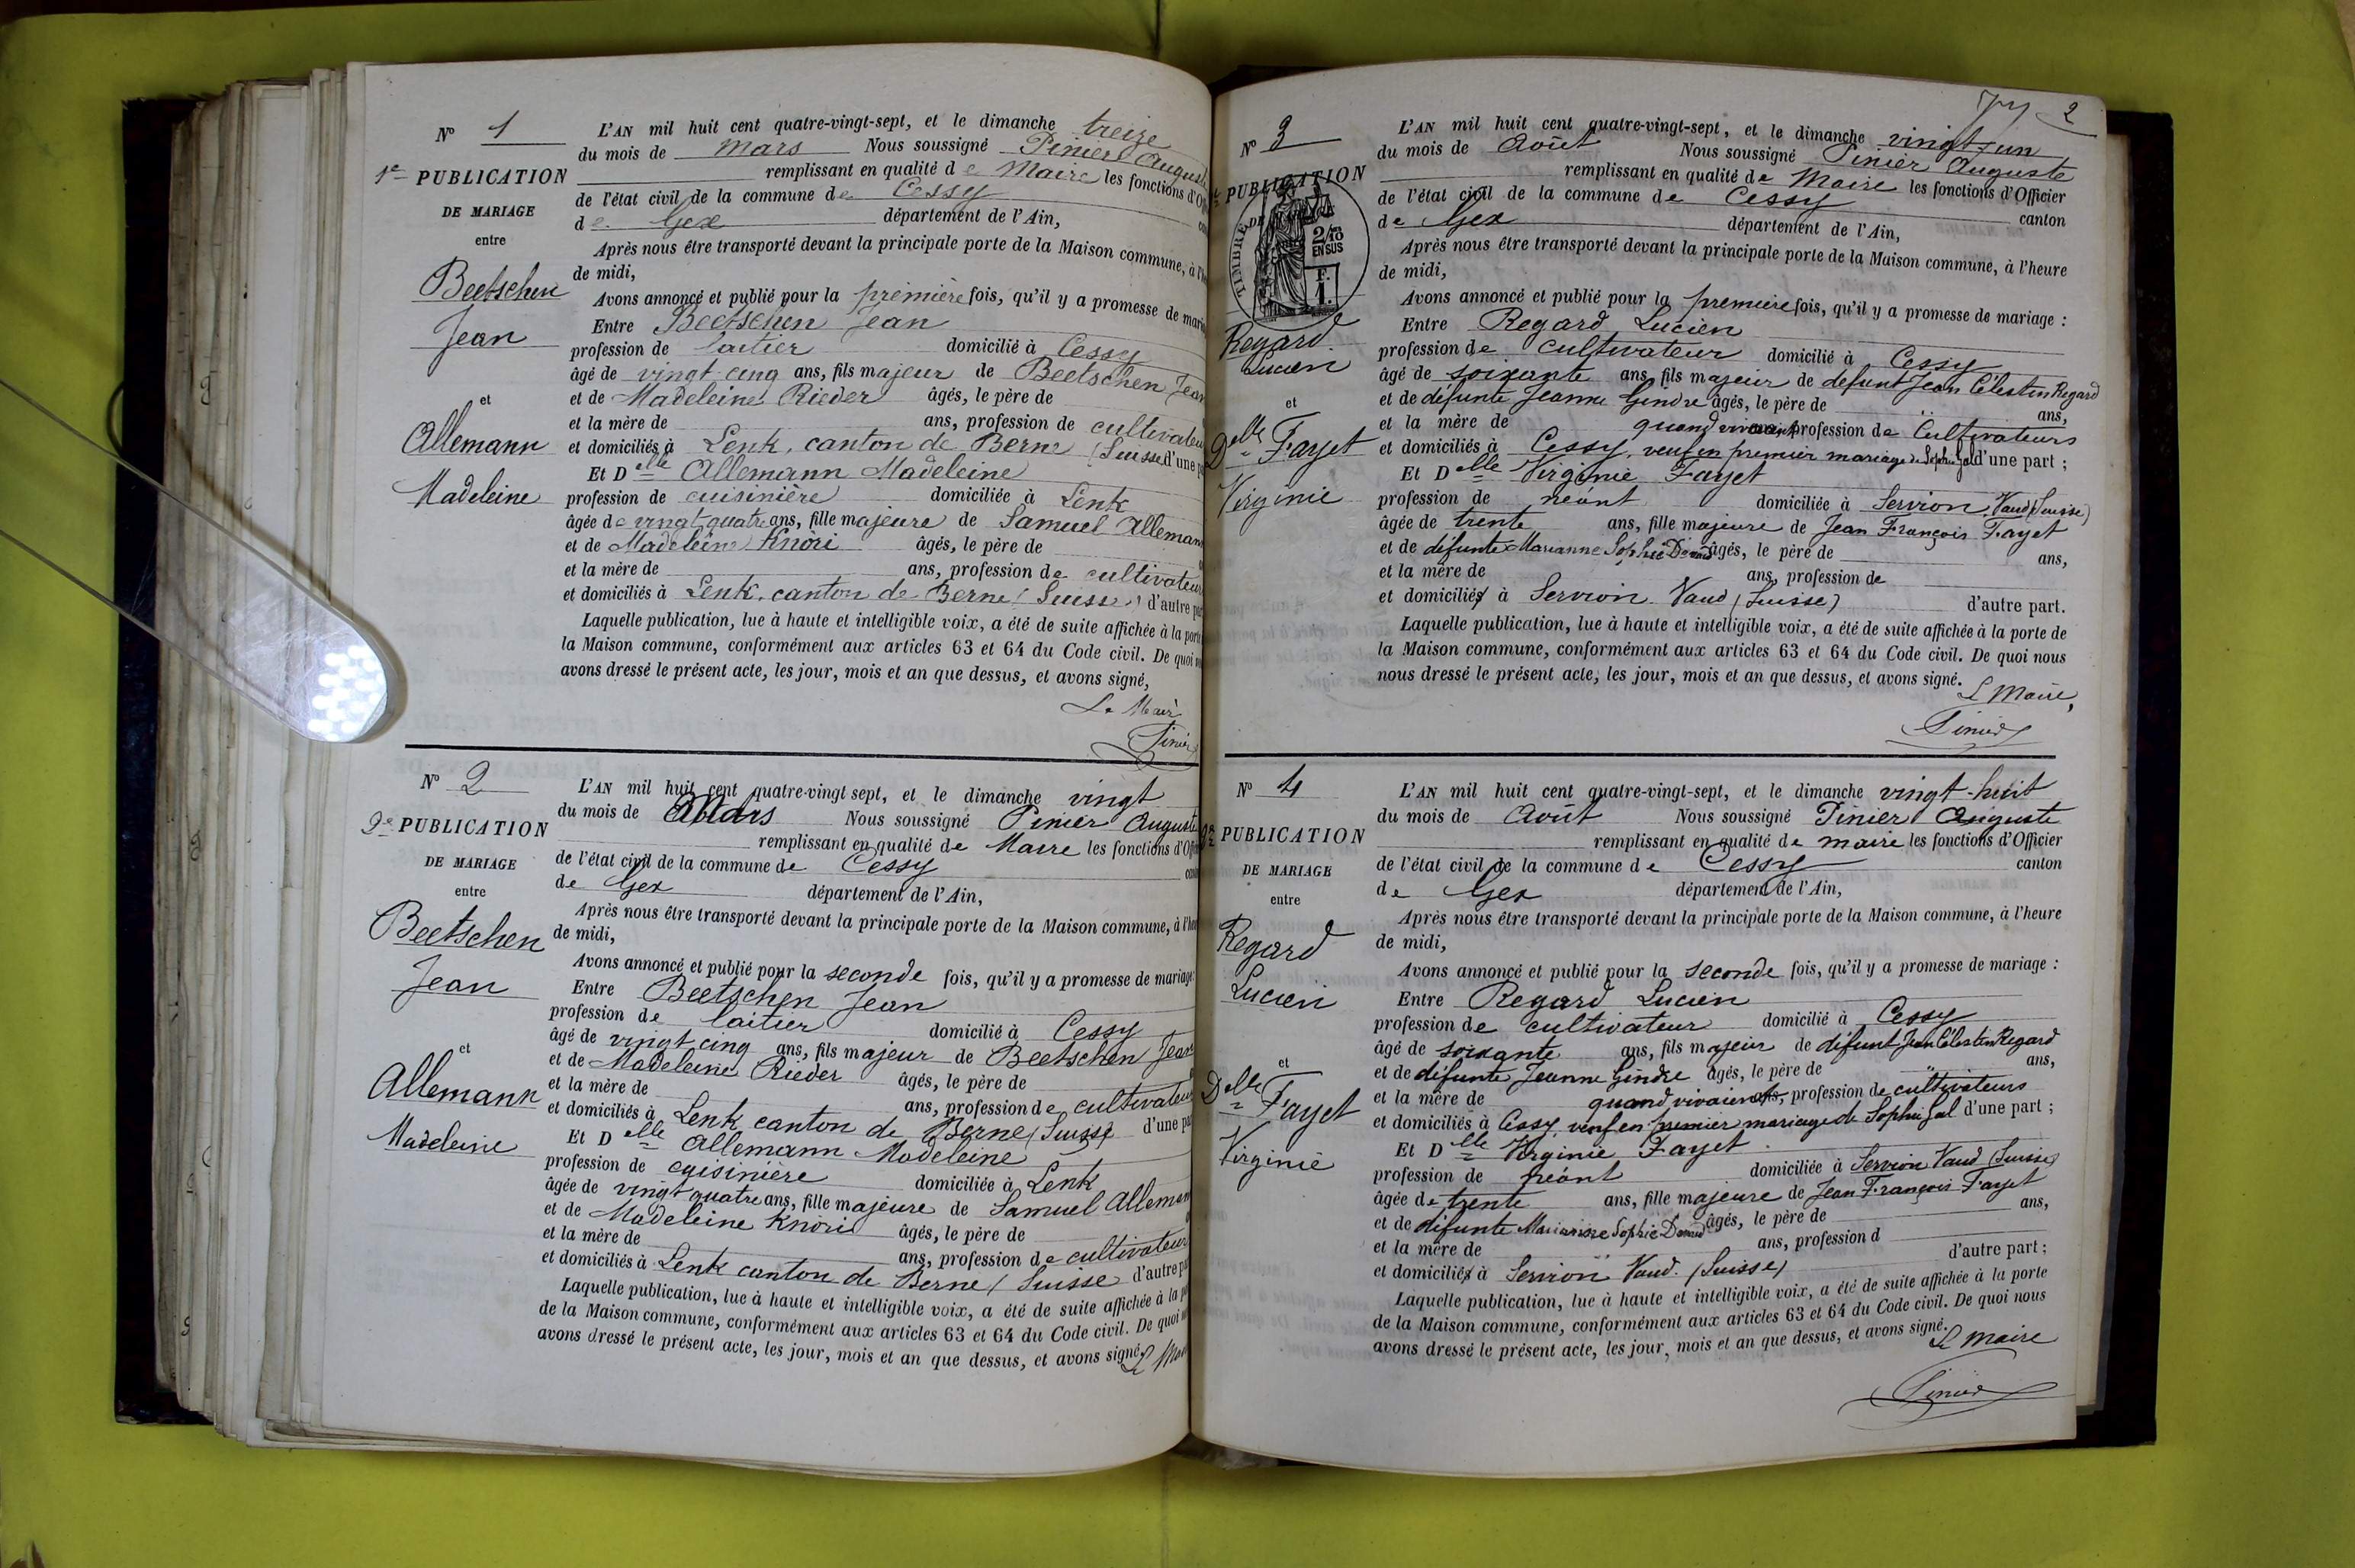 N° 1
1re PUBLICATION
DE MARIAGE
entre
Beetschen
Jean
et
Allemann
Madeleine
L'AN mil huit cent quatre-vingt-sept, et le dimanche treize
du mois de Mars Nous soussigné Pinier Auguste
remplissant en qualité de Maire les fonctions d'Of
de l'état civil de la commune de Cessy
de Gex département de l'Ain,
Après nous être transporté devant la principale porte de la Maison commune, à l'h
de midi,
Avons annoncé et publié pour la première fois, qu'il y a promesse de mari
Entre Beetschen Jean
profession de laitier domicilié à Cessy
âgé de vingt cinq ans, fils majeur de Beetschen Jean
et de Madeleine Rieder âgés, le père de
et la mère de ans, profession de cultivateu
et domiciliés à Lenk, canton de Berne (Suisse d'une p
Et Delle Allemann Madeleine
profession de cuisinière domiciliée à Lenk
âgée de vingt quatre ans, fille majeure de Samuel Alleman
et de Madeleine Knöri âgés, le père de
et la mère de ans, profession de cultivateur
et domiciliés à Lenk, canton de Berne (Suisse) d'autre pa
Laquelle publication, lue à haute et intelligible voix, a été de suite affichée à la porte
la Maison commune, conformément aux articles 63 et 64 du Code civil. De quoi n
avons dressé le présent acte, les jour, mois et an que dessus, et avons signé,
Le Maire
Pinier
N° 2
2e PUBLICATION
DE MARIAGE
entre
Beetschen
Jean
et
Allemann
Madeleine
L'AN mil huit cent quatre-vingt sept, et le dimanche vingt
du mois de Mars Nous soussigné Pinier Auguste
remplissant en qualité de Maire les fonctions d'Of
de l'état civil de la commune de Cessy can
de Gex département de l'Ain,
Après nous être transporté devant la principale porte de la Maison commune, à l'heu
de midi,
Avons annoncé et publié pour la seconde fois, qu'il y a promesse de mariage:
Entre Beetschen Jean
profession de laitier domicilié à Cessy
âgé de vingt cinq ans, fils majeur de Beetschen Jean
et de Madeleine Rieder âgés, le père de
et la mère de ans, profession de cultivateur
et domiciliés à Lenk canton de Berne (Suisse d'une pa
Et Delle Allemann Madeleine
profession de cuisinière domiciliée à Lenk
âgée de vingt quatre ans, fille majeure de Samuel Alleman
et de Madeleine Knöri âgés, le père de
et la mère de ans, profession de cultivateur
et domiciliés à Lenk canton de Berne (Suisse d'autre pa
Laquelle publication, lue à haute et intelligible voix, a été de suite affichée à la p
de la Maison commune, conformément aux articles 63 et 64 du Code civil. De quoi n
avons dressé le présent acte, les jour, mois et an que dessus, et avons signé.
Le Mai
2
N° 3
PUBLICATION
DE MARIAGE
TIMBRE
2/10
EN SUS
F.
1.
Regard
Lucien
et
Delle Fayet
Virginie
L'AN mil huit cent quatre-vingt-sept, et le dimanche vingt-un
du mois de Août Nous soussigné Pinier Auguste
remplissant en qualité de Maire les fonctions d'Officier
de l'état civil de la commune de Cessy canton
de Gex département de l'Ain,
Après nous être transporté devant la principale porte de la Maison commune, à l'heure
de midi,
Avons annoncé et publié pour la première fois, qu'il y a promesse de mariage :
Entre Regard Lucien
profession de cultivateur domicilié à Cessy
âgé de soixante ans, fils majeur de défunt Jean Célestin Regard
et de défunte Jeanne Gindre âgés, le père de ans,
et la mère de quand vivaient profession de Cultivateurs
et domiciliés à Cessy, veuf en premier mariage de Sophie Gal d'une part ;
Et Delle Virginie Fayet
profession de néant domiciliée à Servion, Vaud (Suisse)
âgée de trente ans, fille majeure de Jean François Fayet
et de défunte Marianne Sophie âgés, le père de ans,
et la mère de ans, profession de
et domiciliés à Servion Vaud (Suisse) d'autre part.
Laquelle publication, lue à haute et intelligible voix, a été de suite affichée à la porte de
la Maison commune, conformément aux articles 63 et 64 du Code civil. De quoi nous
nous dressé le présent acte, les jour, mois et an que dessus, et avons signé.
Le Maire,
Pinier
N° 4
2e PUBLICATION
DE MARIAGE
entre
Regard
Lucien
et
Delle Fayet
Virginie
L'AN mil huit cent quatre-vingt-sept, et le dimanche vingt-huit
du mois de Août Nous soussigné Pinier Auguste
remplissant en qualité de maire les fonctions d'Officier
de l'état civil de la commune de Cessy canton
de Gex département de l'Ain,
Après nous être transporté devant la principale porte de la Maison commune, à l'heure
de midi,
Avons annoncé et publié pour la seconde fois, qu'il y a promesse de mariage :
Entre Regard Lucien
profession de cultivateur domicilié à Cessy
âgé de soixante ans, fils majeur de défunt Jean Célestin Regard
et de défunte Jeanne Gindre âgés, le père de ans,
et la mère de quand vivaient ans, profession de cultivateurs
et domiciliés à Cessy veuf en premier mariage de Sophie Gal d'une part ;
Et Delle Virginie Fayet
profession de néant domiciliée à Servion Vaud (Suisse)
âgée de trente ans, fille majeure de Jean François Fayet
et de défunte Marianne Sophie âgés, le père de ans,
et la mère de ans, profession d
et domiciliés à Servion Vaud. (Suisse) d'autre part ;
Laquelle publication, lue à haute et intelligible voix, a été de suite affichée à la porte
de la Maison commune, conformément aux articles 63 et 64 du Code civil. De quoi nous
avons dressé le présent acte, les jour, mois et an que dessus, et avons signé.
Le maire
Pinier